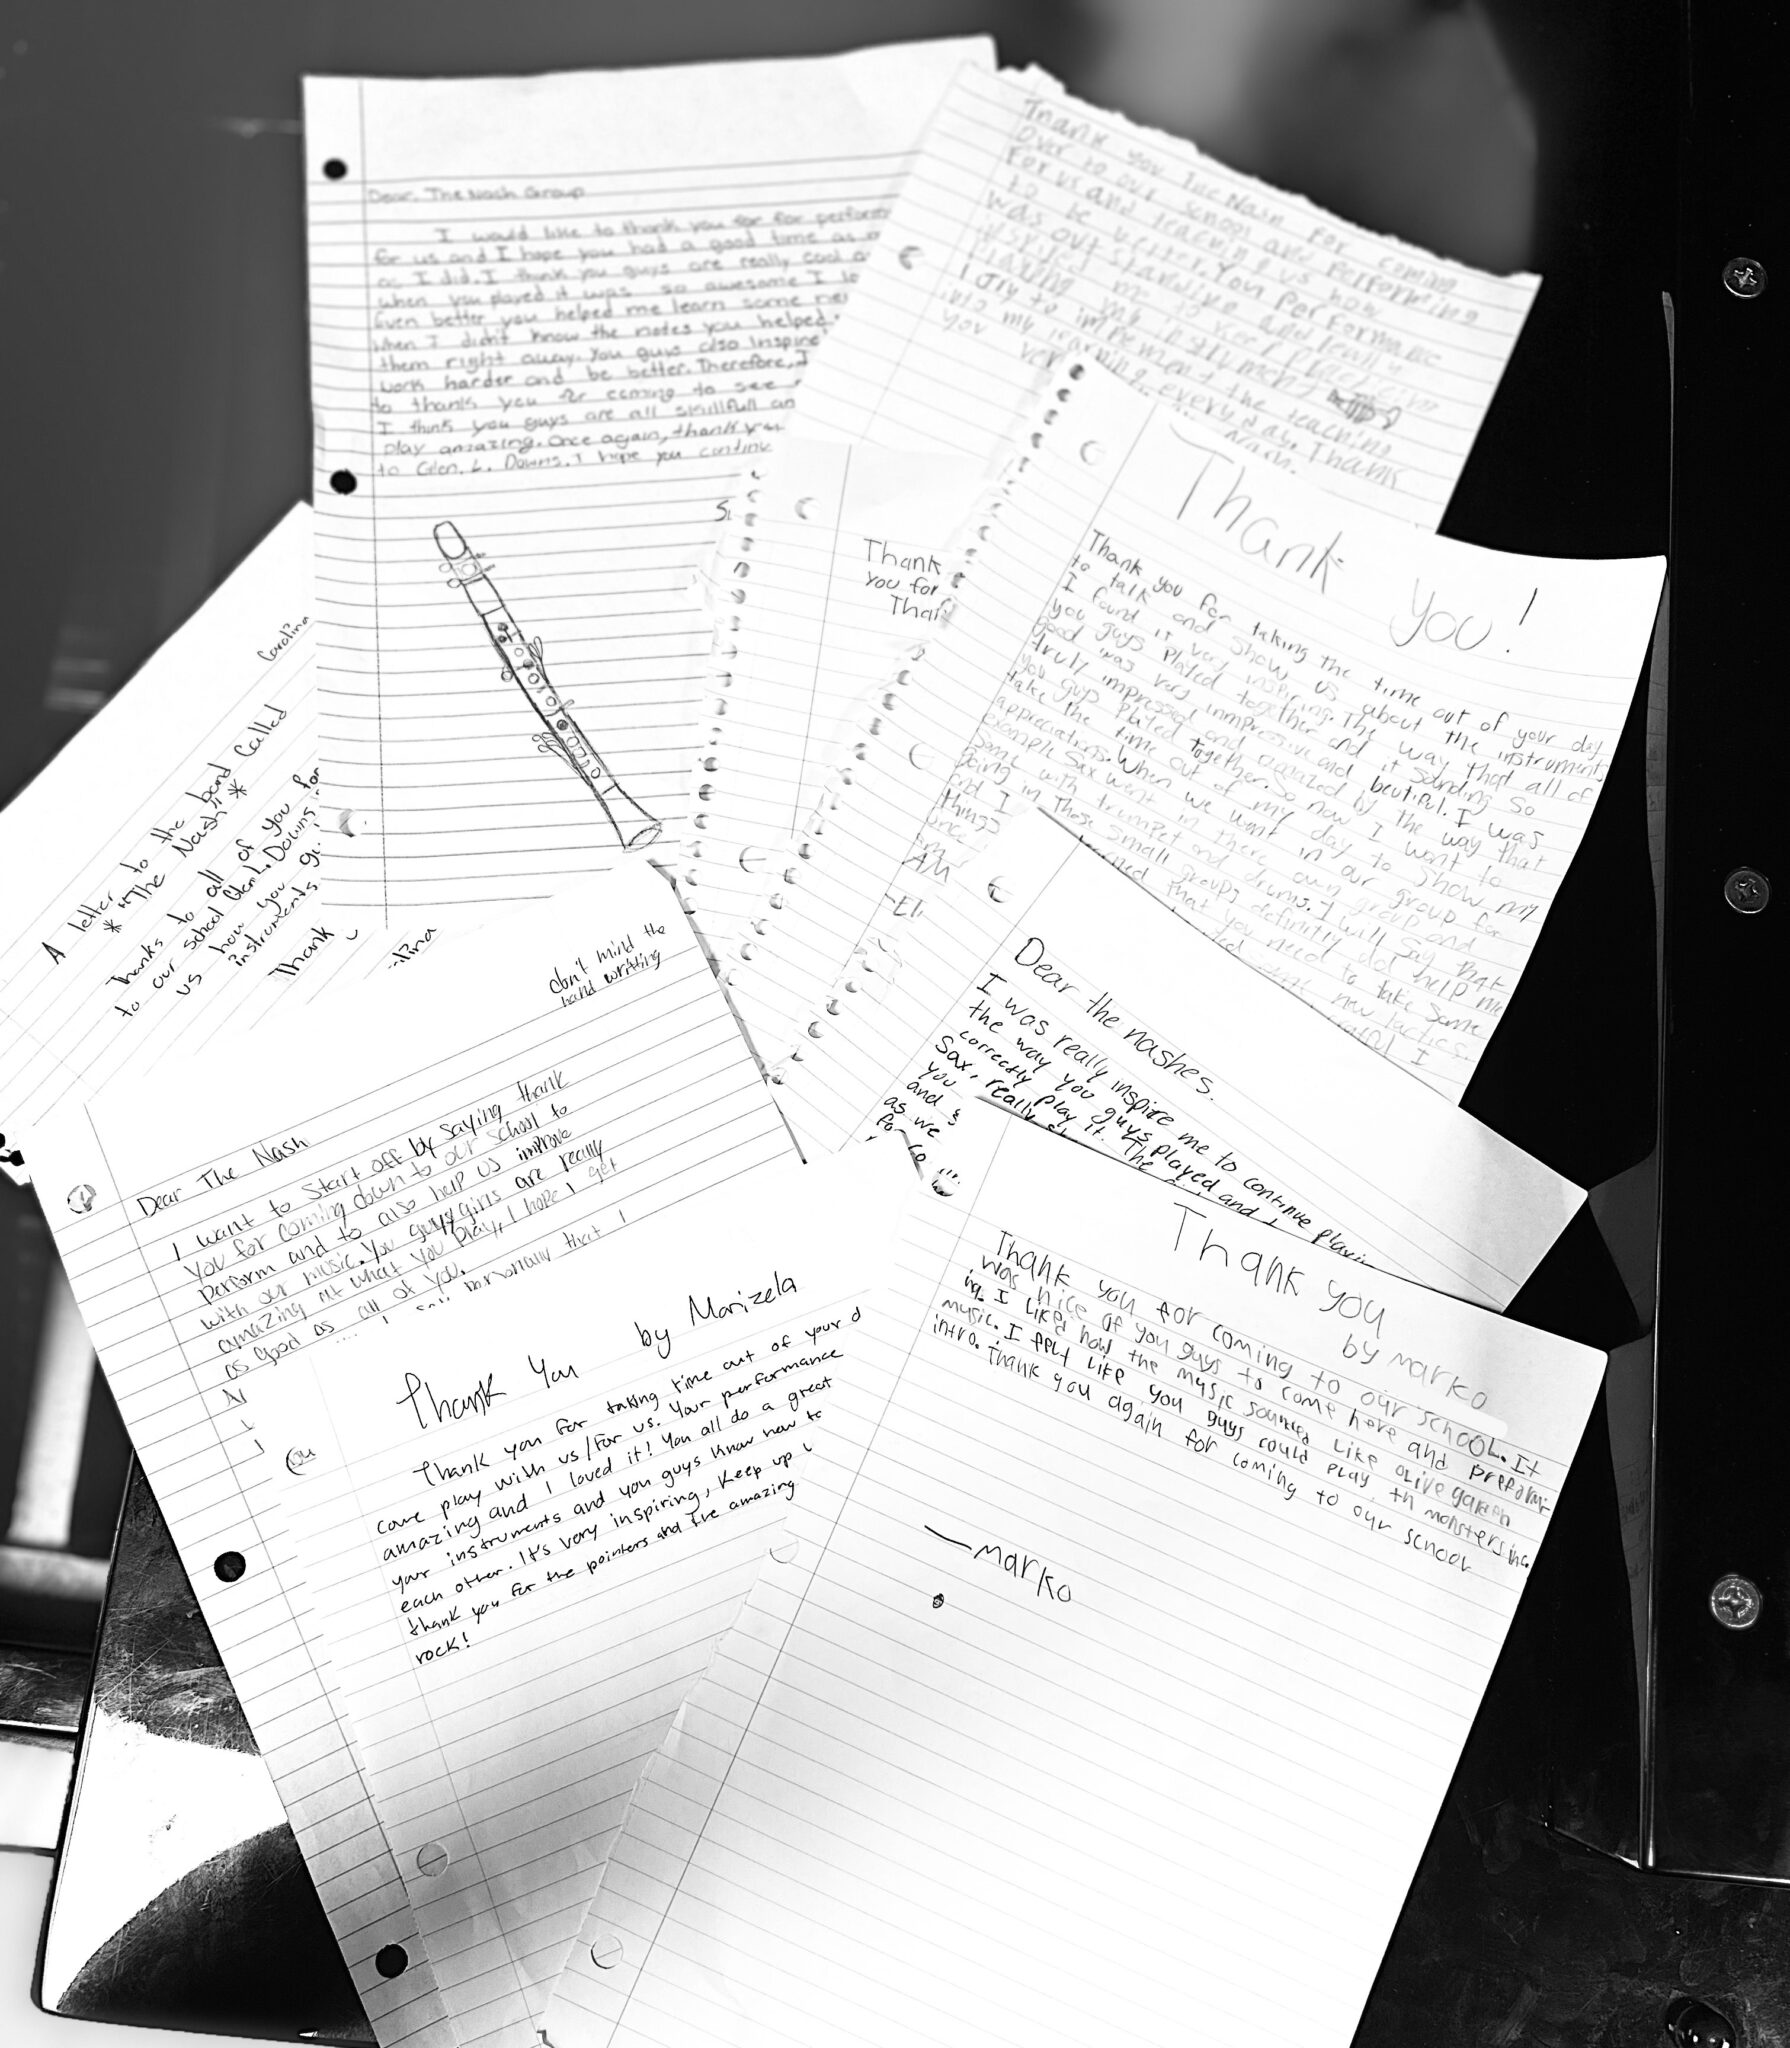 Dear. The Nash Group
I would like to thank you for for perform
for us and I hope you had a good time as m
as I did. I think you guys are really cool a
when you played it was so awesome I lo
Even better you helped me learn some ne
when I didn't know the notes you helped
them right away. You guys also inspire
work harder and be better. Therefore, I
to thank you for coming to see
I think you guys are all skillfull an
play amazing. Once again, thank you
to Glen. L. Downs. I hope you continu
Thank you The Nash for coming
over to our school and Performing
For us and teaching us how
to be better. You Performance
was out standing and really
inspired me to keep
Playing my instrument
I Try to implement the teaching
into my learning every day. Thank
you
Thank
you for
Than
Thank you!
Thank you for taking the time out of your day
to talk and show us about the instruments
I found it very inspiring. The way that all of
you guys played together and it sounding so
good was very impressive and beautiful. I was
truly impressed and amazed by the way that
you guys played together. So now I want to
take the time out of my day to show my
appreciations. When we went in our group for
example Sax went in there own group and
same with trumpet and drums. I will say that
going in those small groups definitly did help me
and I learned that you need to take some
things
new tactics.
AM
-El
Carolina
A letter to the band Called
* "The Nash" *
Thanks to all of you for
to our school Glen L. Downs
us how you gu
instruments.
Thank
don't mind the
hand writting
Dear The Nash
I want to start off by saying thank
you for coming down to our school to
perform and to also help us improve
with our music. You guys/girls are really
amazing at what you play, I hope I get
as good as all of you.
personally that I
Dear the nashes.
I was really inspire me to continue playin
the way you guys played and
correctly play it. The
Sax, really
you
and
as we
for
Thank You by Marizela
Thank you for taking time out of your d
come play with us/for us. Your performance
amazing and I loved it! You all do a great
your instruments and you guys know how to
each other. It's very inspiring, keep up
thank you for the pointers and the amazing
rock!
Thank you
by marko
Thank you for coming to our school. It
was nice of you guys to come here and preform-
ing. I liked how the music sounded like olive garden
music. I felt like you guys could play th monsters inc.
intro. Thank you again for coming to our school
—marko